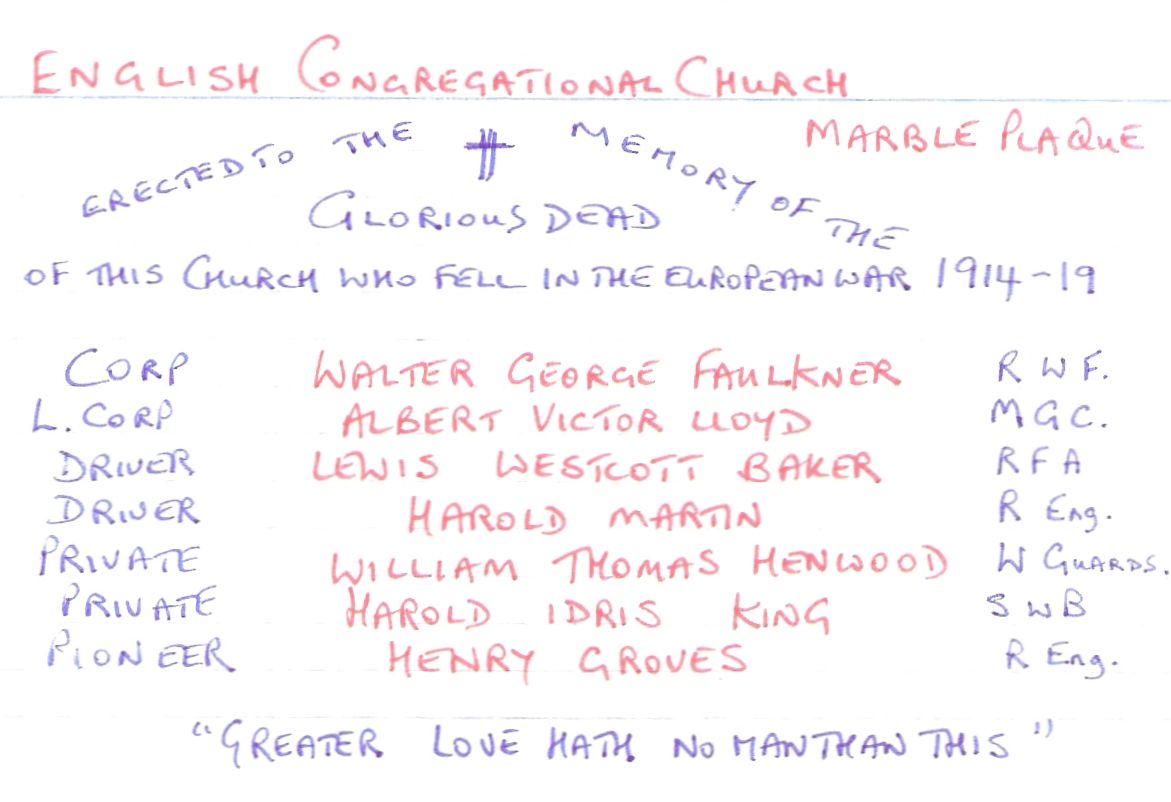 ENGLISH CONGREGATIONAL CHURCH
MARBLE PLAQUE
ERECTED TO THE MEMORY OF THE
GLORIOUS DEAD
OF THIS CHURCH WHO FELL IN THE EUROPEAN WAR 1914-19
CORP WALTER GEORGE FAULKNER R W F.
L. CORP ALBERT VICTOR LLOYD M G C.
DRIVER LEWIS WESTCOTT BAKER R F A
DRIVER HAROLD MARTIN R Eng.
PRIVATE WILLIAM THOMAS HENWOOD W GUARDS.
PRIVATE HAROLD IDRIS KING S W B
PIONEER HENRY GROVES R Eng.
"GREATER LOVE HATH NO MAN THAN THIS"